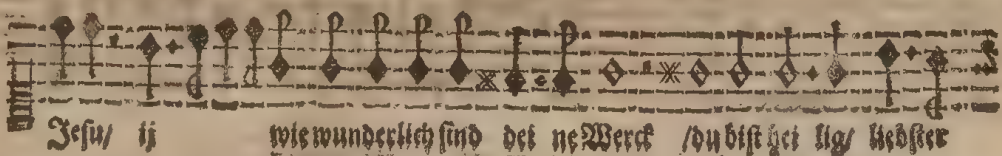 Jesu/ ij wie wunderlich sind dei ne Werck /du bist hei lig/ liebster